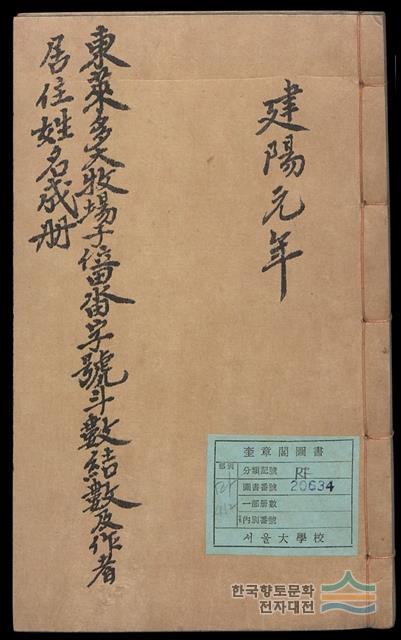 建陽元年
東萊多大牧場子位田畓字號斗數結數及作者
居住姓名成册
奎章閣圖書
分類記號
圖書番號 20634
一部册數
內別番號
서울大學校
한국향토문화
전자대전